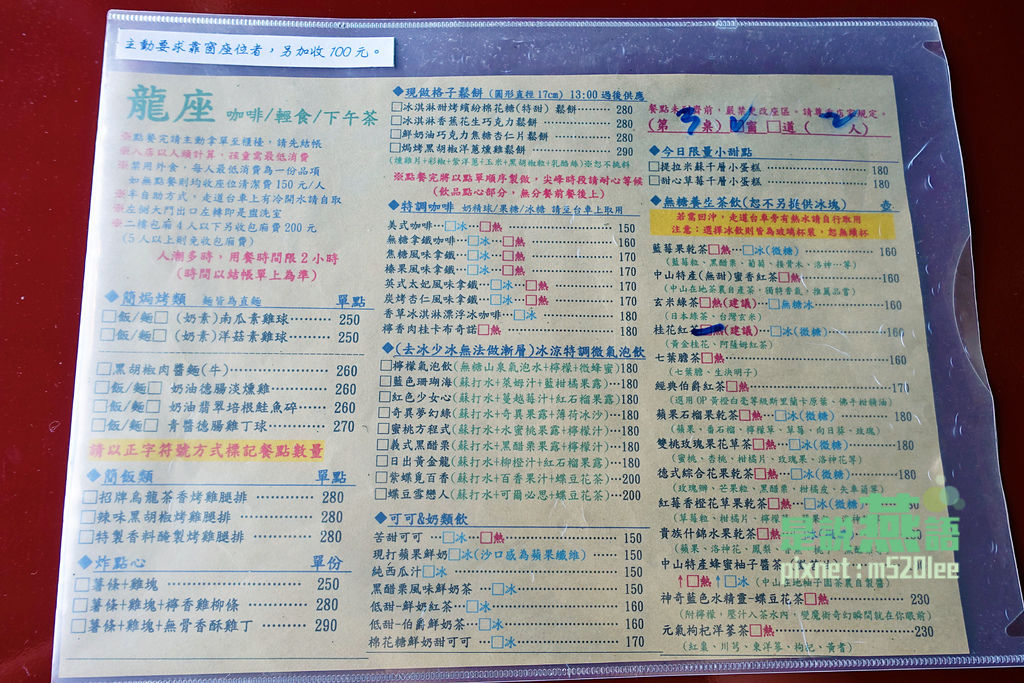 主動要求靠窗座位者，另加收100元。
龍座 咖啡/輕食/下午茶
※點餐完請主動拿單至櫃檯，請先結帳
※入店以人頭計算，孩童需最低消費
※禁用外食，每人最低消費為一份品項
如無點餐則均收座位清潔費150元/人
※半自助方式，走道台車上有冷開水請自取
※左側大門出口左轉即是盥洗室
※二樓包廂4人以下另收包廂費200元
(5人以上則免收包廂費)
人潮多時，用餐時間限2小時
(時間以結帳單上為準)
◆簡焗烤類 麵皆為直麵 單點
□飯/麵□ (奶素)南瓜素雞球 250
□飯/麵□ (奶素)洋菇素雞球 250
□黑胡椒肉醬麵(牛) 260
□飯/麵□ 奶油德腸淡燻雞 260
□飯/麵□ 奶油翡翠培根鮭魚碎 260
□飯/麵□ 青醬德腸雞丁球 270
請以正字符號方式標記餐點數量
◆簡飯類 單點
□招牌烏龍茶香烤雞腿排 280
□辣味黑胡椒烤雞腿排 280
□特製香料醃製烤雞腿排 280
◆炸點心 單份
□薯條+雞塊 250
□薯條+雞塊+檸香雞柳條 280
□薯條+雞塊+無骨香酥雞丁 290
◆現做格子鬆餅 (圓形直徑17cm) 13:00過後供應
□冰淇淋甜烤繽紛棉花糖(特甜) 鬆餅 280
□冰淇淋香蕉花生巧克力鬆餅 280
□鮮奶油巧克力焦糖杏仁片鬆餅 280
□焗烤黑胡椒洋蔥燻雞鬆餅 290
(燻雞片+彩椒+紫洋蔥+玉米+黑胡椒粒+乳酪絲)※恕不挑料
※點餐完將以點單順序製做，尖峰時段請耐心等候
(飲品點心部分，無分餐前餐後上)
◆特調咖啡 奶精球/果糖/冰糖 請至台車上取用
美式咖啡 □冰 □熱 150
無糖拿鐵咖啡 □冰 □熱 160
焦糖風味拿鐵 □冰 □熱 170
榛果風味拿鐵 □冰 □熱 170
英式太妃風味拿鐵 □冰 □熱 170
炭烤杏仁風味拿鐵 □冰 □熱 170
香草冰淇淋漂浮冰咖啡 □冰 180
檸香肉桂卡布奇諾□熱 180
◆(去冰少冰無法做漸層)冰涼特調微氣泡飲
□檸檬氣泡飲(無糖山泉氣泡水+檸檬+微蜂蜜)180
□藍色珊瑚海(蘇打水+萊姆汁+藍柑橘果露)180
□紅色少女心(蘇打水+蔓越莓汁+紅石榴果露)180
□奇異夢幻綠(蘇打水+奇異果露+薄荷冰沙)180
□蜜桃方程式(蘇打水+水蜜桃果露+檸檬汁)180
□義式黑醋栗(蘇打水+黑醋栗果露+檸檬汁)180
□日出黃金龍(蘇打水+柳橙汁+紅石榴果露)180
□紫蝶覓百香(蘇打水+百香果汁+蝶豆花茶)200
□蝶豆雪戀人(蘇打水+可爾必思+蝶豆花茶)200
◆可可&奶類飲
苦甜可可 □冰 □熱 150
現打蘋果鮮奶□冰(沙口感為蘋果纖維) 150
純西瓜汁□冰 150
黑醋栗風味鮮奶茶 □冰 150
低甜-鮮奶紅茶 □冰 160
低甜-伯爵鮮奶茶 □冰 160
棉花糖鮮奶甜可可 □冰 170
餐點未到齊前，嚴禁更改座區。請尊重店家規定。
(第 3 桌) □窗 □道 ( 2 人)
◆今日限量小甜點
□提拉米蘇千層小蛋糕 180
□甜心草莓千層小蛋糕 180
◆無糖養生茶飲(恕不另提供冰塊) 壺
若需回沖，走道台車旁有熱水請自行取用
注意：選擇冰飲則皆為玻璃杯裝，恕無續杯
藍莓果乾茶□熱 □冰(微糖) 160
(藍莓粒、黑醋栗、葡萄、接骨木、洛神…等)
中山特產(無甜)蜜香紅茶□熱 160
(中山在地茶農自產茶，獨特香氣，推薦品嘗)
玄米綠茶□熱(建議) □無糖冰 160
(日本綠茶、台灣玄米)
桂花紅茶 (建議) □冰(微糖) 160
(黃金桂花、阿薩姆紅茶)
七葉膽茶□熱 160
(七葉膽、生決明子)
經典伯爵紅茶□熱 170
(選用OP黃橙白毫等級斯里蘭卡原葉、佛手柑精油)
蘋果石榴果乾茶□熱 □冰(微糖) 180
(蘋果、番石榴、檸檬草、草莓、向日葵、玫瑰)
雙桃玫瑰果花草茶□熱 □冰(微糖) 180
(蜜桃、杏桃、柑橘片、玫瑰果、洛神花等)
德式綜合花果乾茶□熱 □冰(微糖) 180
(玫瑰瓣、芒果粒、黑醋栗、柑橘皮、矢車菊等)
紅莓香橙花草果乾茶□熱 □冰(微糖)
(草莓粒、柑橘片、檸檬草
貴族什錦水果乾茶□熱
(蘋果、洛神花、鳳梨
中山特產蜂蜜柚子醬茶
↑□熱 ↑□冰 (中山在地柚子園茶農自製醬)
神奇藍色水精靈-蝶豆花茶□熱 230
(附檸檬，壓汁入茶水內，變魔術奇幻瞬間就在你眼前)
元氣枸杞洋蔘茶□熱 230
(紅棗、川芎、東洋蔘、枸杞、黃耆)
星說燕語
pixnet : m520lee